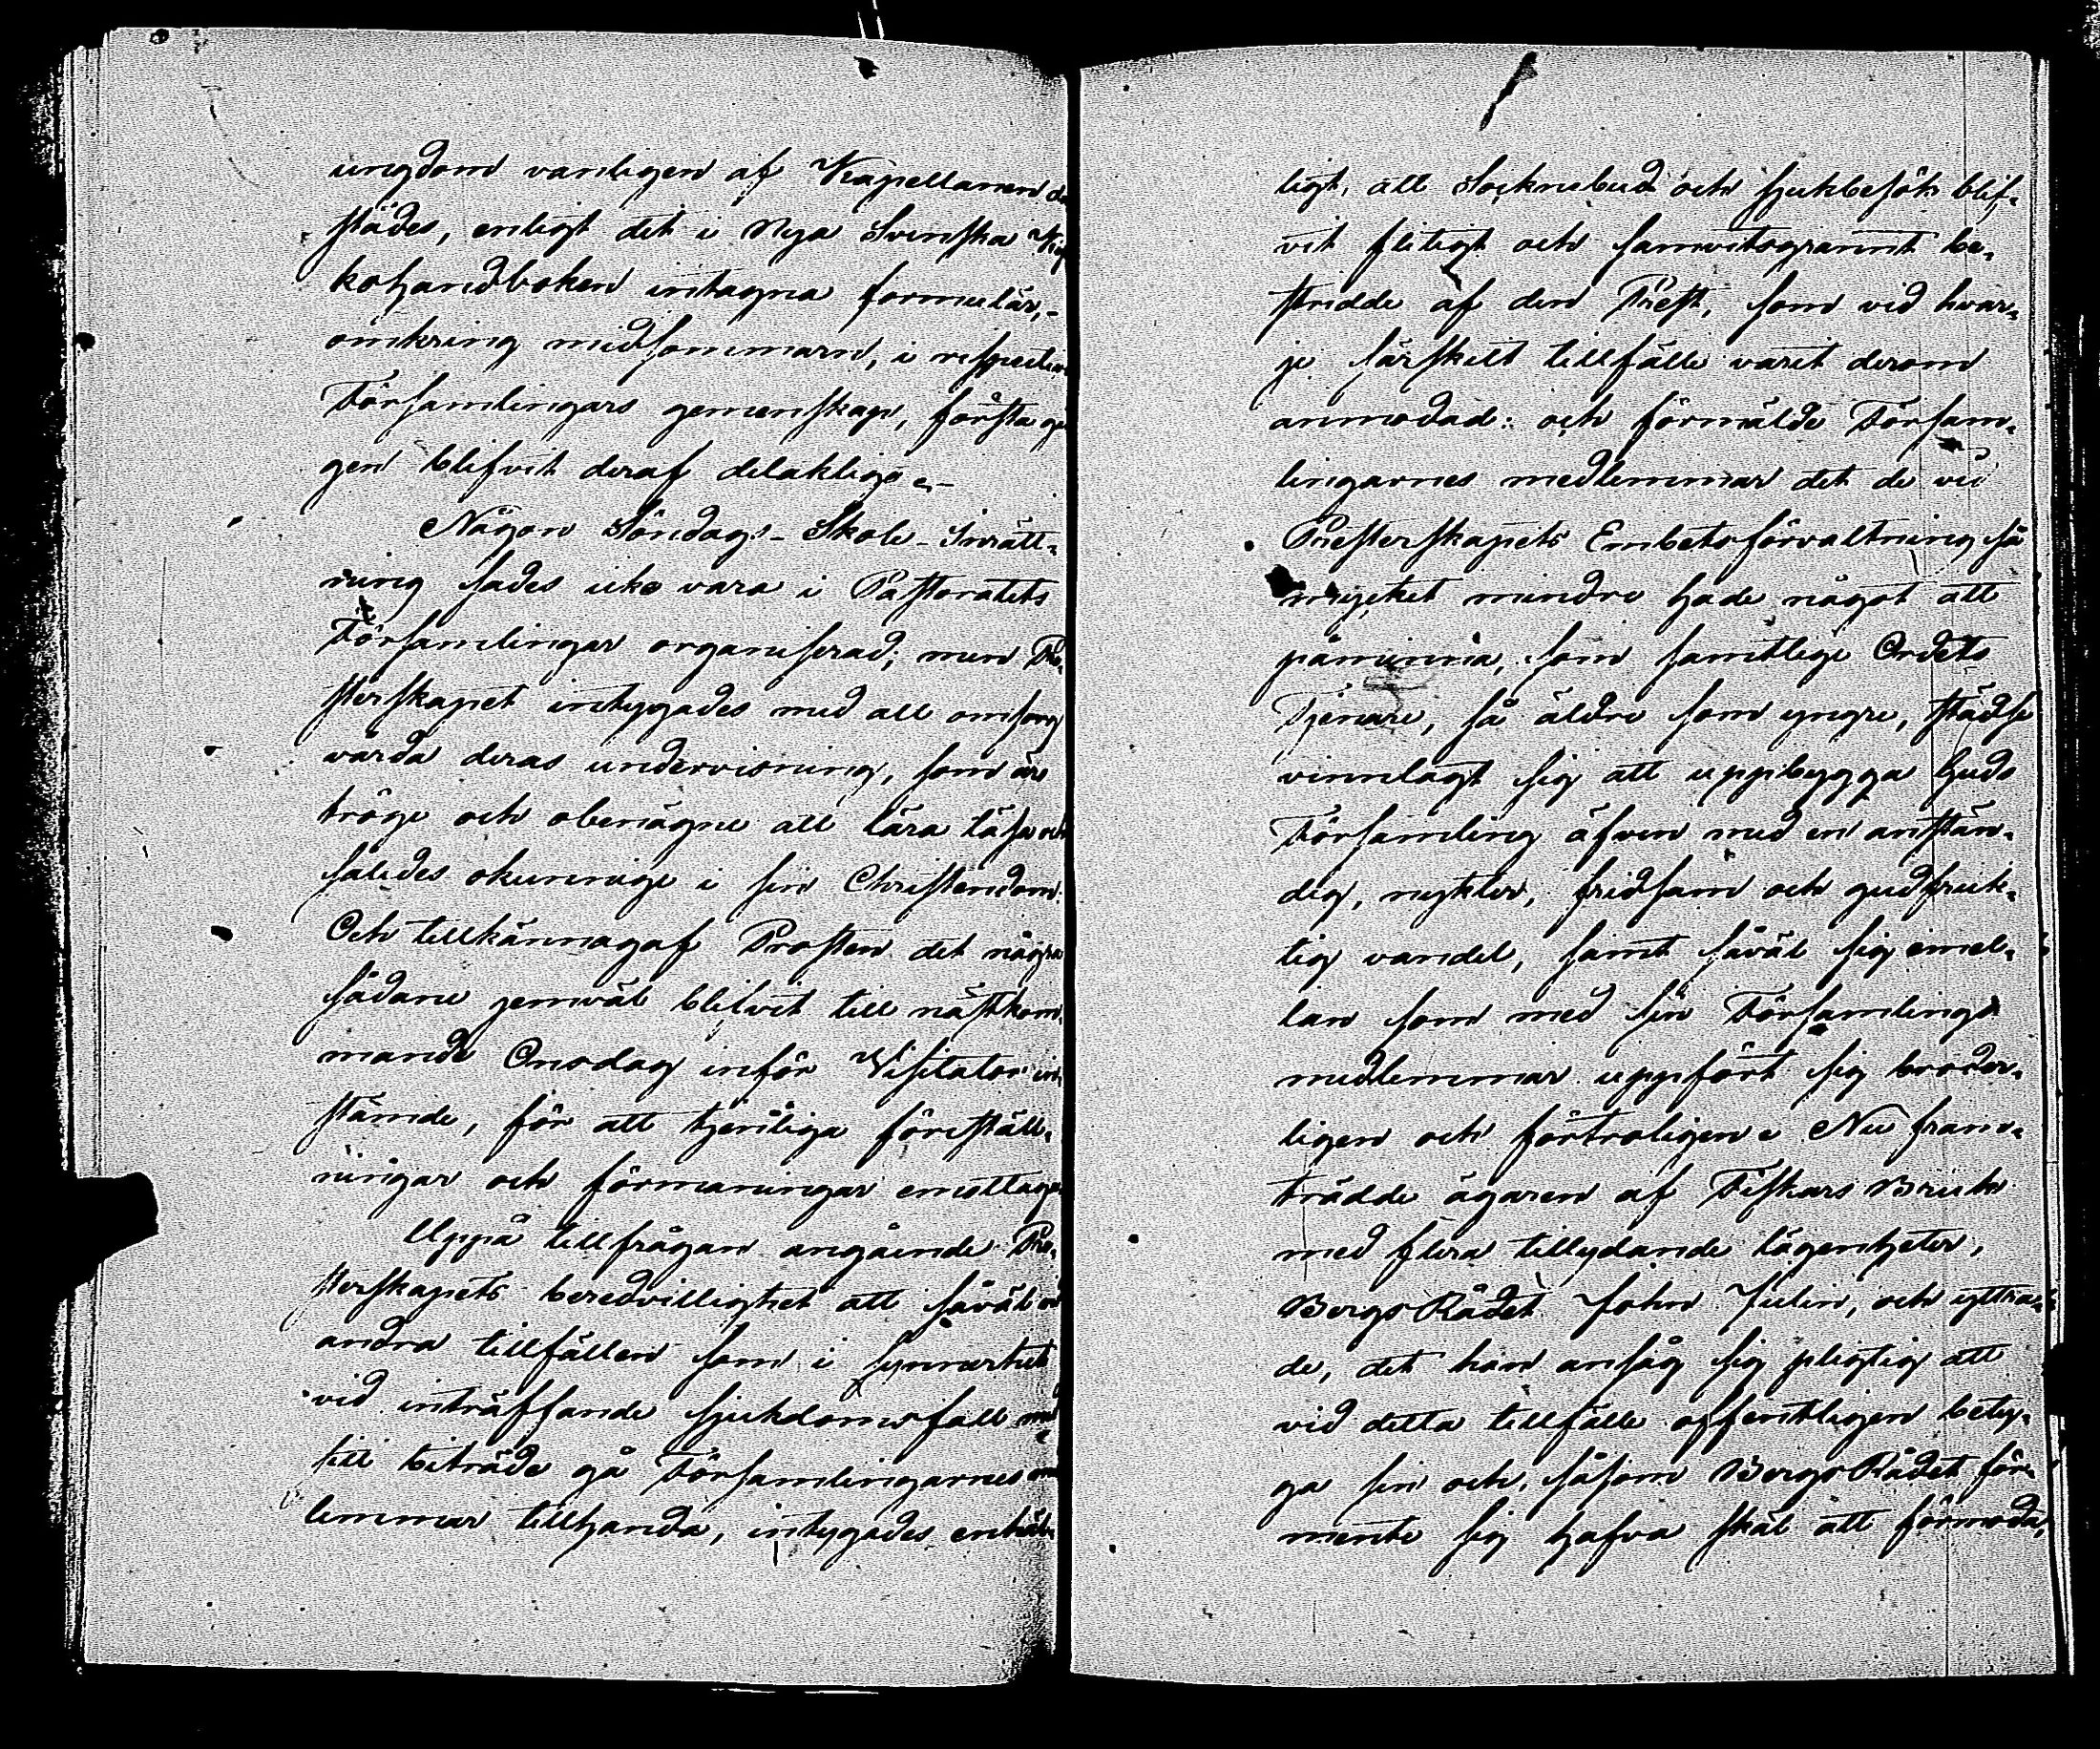 ungdom vanligen af Kapellanen
städes, enligt det i Nya Svenska
kohandboken intagna formulär,-
omkring midsommarn, i respective
Församlingars gemenskap, första
gen blifvit deraf delaktige.-
Någon Söndags-Skole-Inrätt-
ning sades icke vara i Pastoratets
Församlingar organiserad; men Pre-
sterskapet intygades med all omsorg
vårda deras undervisning, som äro
tröge och obenägne att lära läsa och
således okunnige i sin Christendom.
Och tillkännagaf Prosten det några
sådane jemväl blifvit till nästkom-
mande Onsdag inför Visitator in-
stämde, för att tjenliga föreställ-
ningar och förmaningar emottaga
Uppå tillfrågan angående Pre-
sterskapets beredvillighet att såväl vid
andra tillfällen som i synnerhet
vid inträffande sjukdomsfall med
till biträde gå Församlingarnes
lemmar tillhanda, intygades enhäl-
ligt, att Sockenebud och sjukbesök blif-
vit flitigt och samvetsgrannt be-
stridde af den Prest, som vid hvar-
je särskilt tillfälle varit derom
anmodad: och förmälde Försam-
lingarnes medlemmar det de vid
Presterskapets Embetsförvaltning så
mycket mindre hade något att
påminna, som samtlige Ordets
Tjenare, så äldre som yngre, städse
vinnlagt sig att uppbygga Guds
Församling äfven med en anstän-
dig, nykter, fridsam och gudfruk-
tig vandel, samt såväl sig emel-
lan som med sin Församlings
medlemmar uppfört sig broder-
ligen och förtroligen. Nu fram-
trädde ägaren af Fiskars Bruk
med flera tillydande lägenheter,
BergsRådet John Julin, och yttra-
de, det han ansåg sig pligtig att
vid detta tillfälle offentligen bety-
ga sin och, såsom BergsRådet för-
mente sig hafva skäl att förmoda,